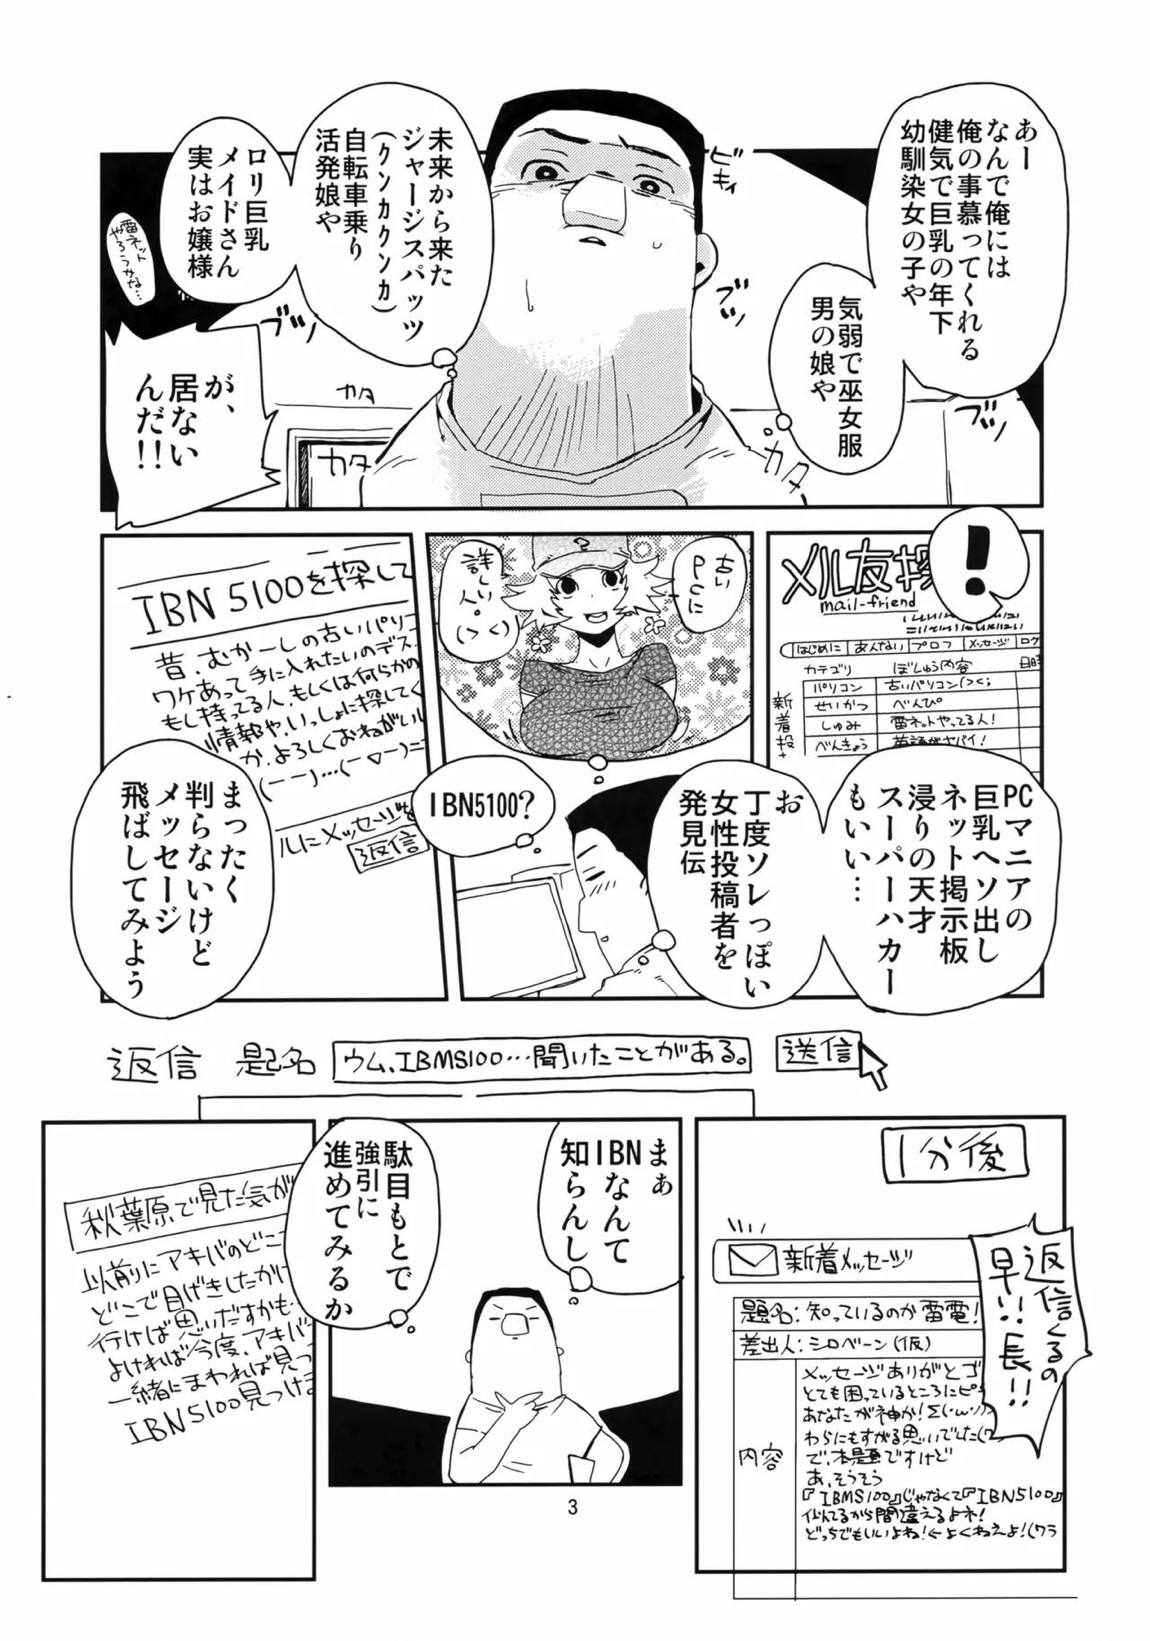 あー
なんで俺には
俺の事慕ってくれる
健気で巨乳の年下
幼馴染女の子や
気弱で巫女服
男の娘や
ビキィ
ブツ
ブツ
ブツ
カタ
カタ
カタ
未来から来た
ジャージスパッツ
(クンカクンカ)
自転車乗り
活発娘や
ロリ巨乳
メイドさん
実はお嬢様
雷ネット
やろうかな…
が、
居ない
んだ!!
!
メル友探
mail-friend
はじめに
あんない
プロフ
メッセージ
ログ
カテゴリ
ぼしゅう内容
新着投
パソコン
古いパソコン(>く;
せいかつ
べんぴ
しゅみ
雷ネットやってる人!
べんきょう
英語がヤバイ!
PCマニアの
巨乳ヘソ出し
ネット掲示板
浸りの天才
スーパーハカー
もいい…
古い
PCに
詳しい
人。
(>く)
お
丁度ソレっぽい
女性投稿者を
発見伝
IBN5100?
IBN 5100を探して
昔.むかーしの古いパソコ
ワケあって手に入れたいのデス.
もし持ってる人、もしくは何らかの
情報や、いっしょに探してく
か.よろしくおねがいし
(一一)…(一▽一)ニ
ルにメッセージを
返信
まったく
判らないけど
メッセージ
飛ばしてみよう
返信
題名
ウム、IBM5100…聞いたことがある。
送信
1分後
返信くるの
早!!長!!
新着メッセージ
題名:知っているのか雷電!
差出人:シロベーン(仮)
内容
メッセージありがとゴ
とても困っているところにピ
あなたが神か!Σ(・ω・ノ)ノ
わらにもすがる思いでした(ワ
で、本題ですけど
あ、そうそう
『IBM5100』じゃなくて『IBN5100』
似てるから間違えるよネ!
どっちでもいいよね!←よくねえよ!(ワラ
まぁ
IBNなんて
知らんし
駄目もとで
強引に
進めてみるか
秋葉原で見た気が
以前にアキバのどこ
どこで目げきしたかに
行けば思いだすかも
よければ今度、アキバ
一緒にまわれば見つ
IBN5100見つけま
3